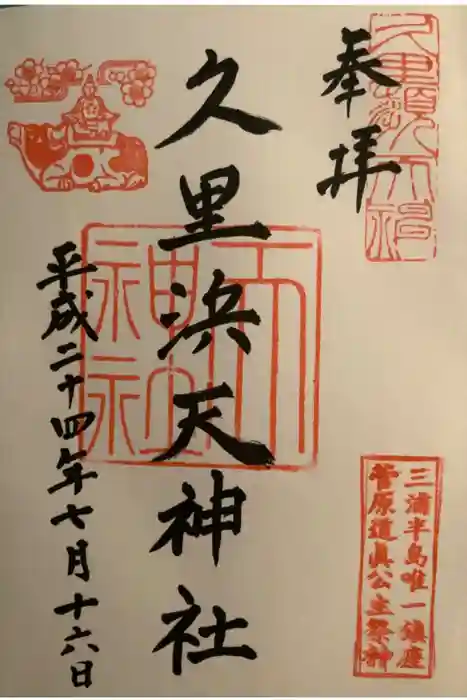 奉拝
久里浜天神社
平成二十四年七月十六日
三浦半島唯一鎮座
菅原道真公主祭神
天神社